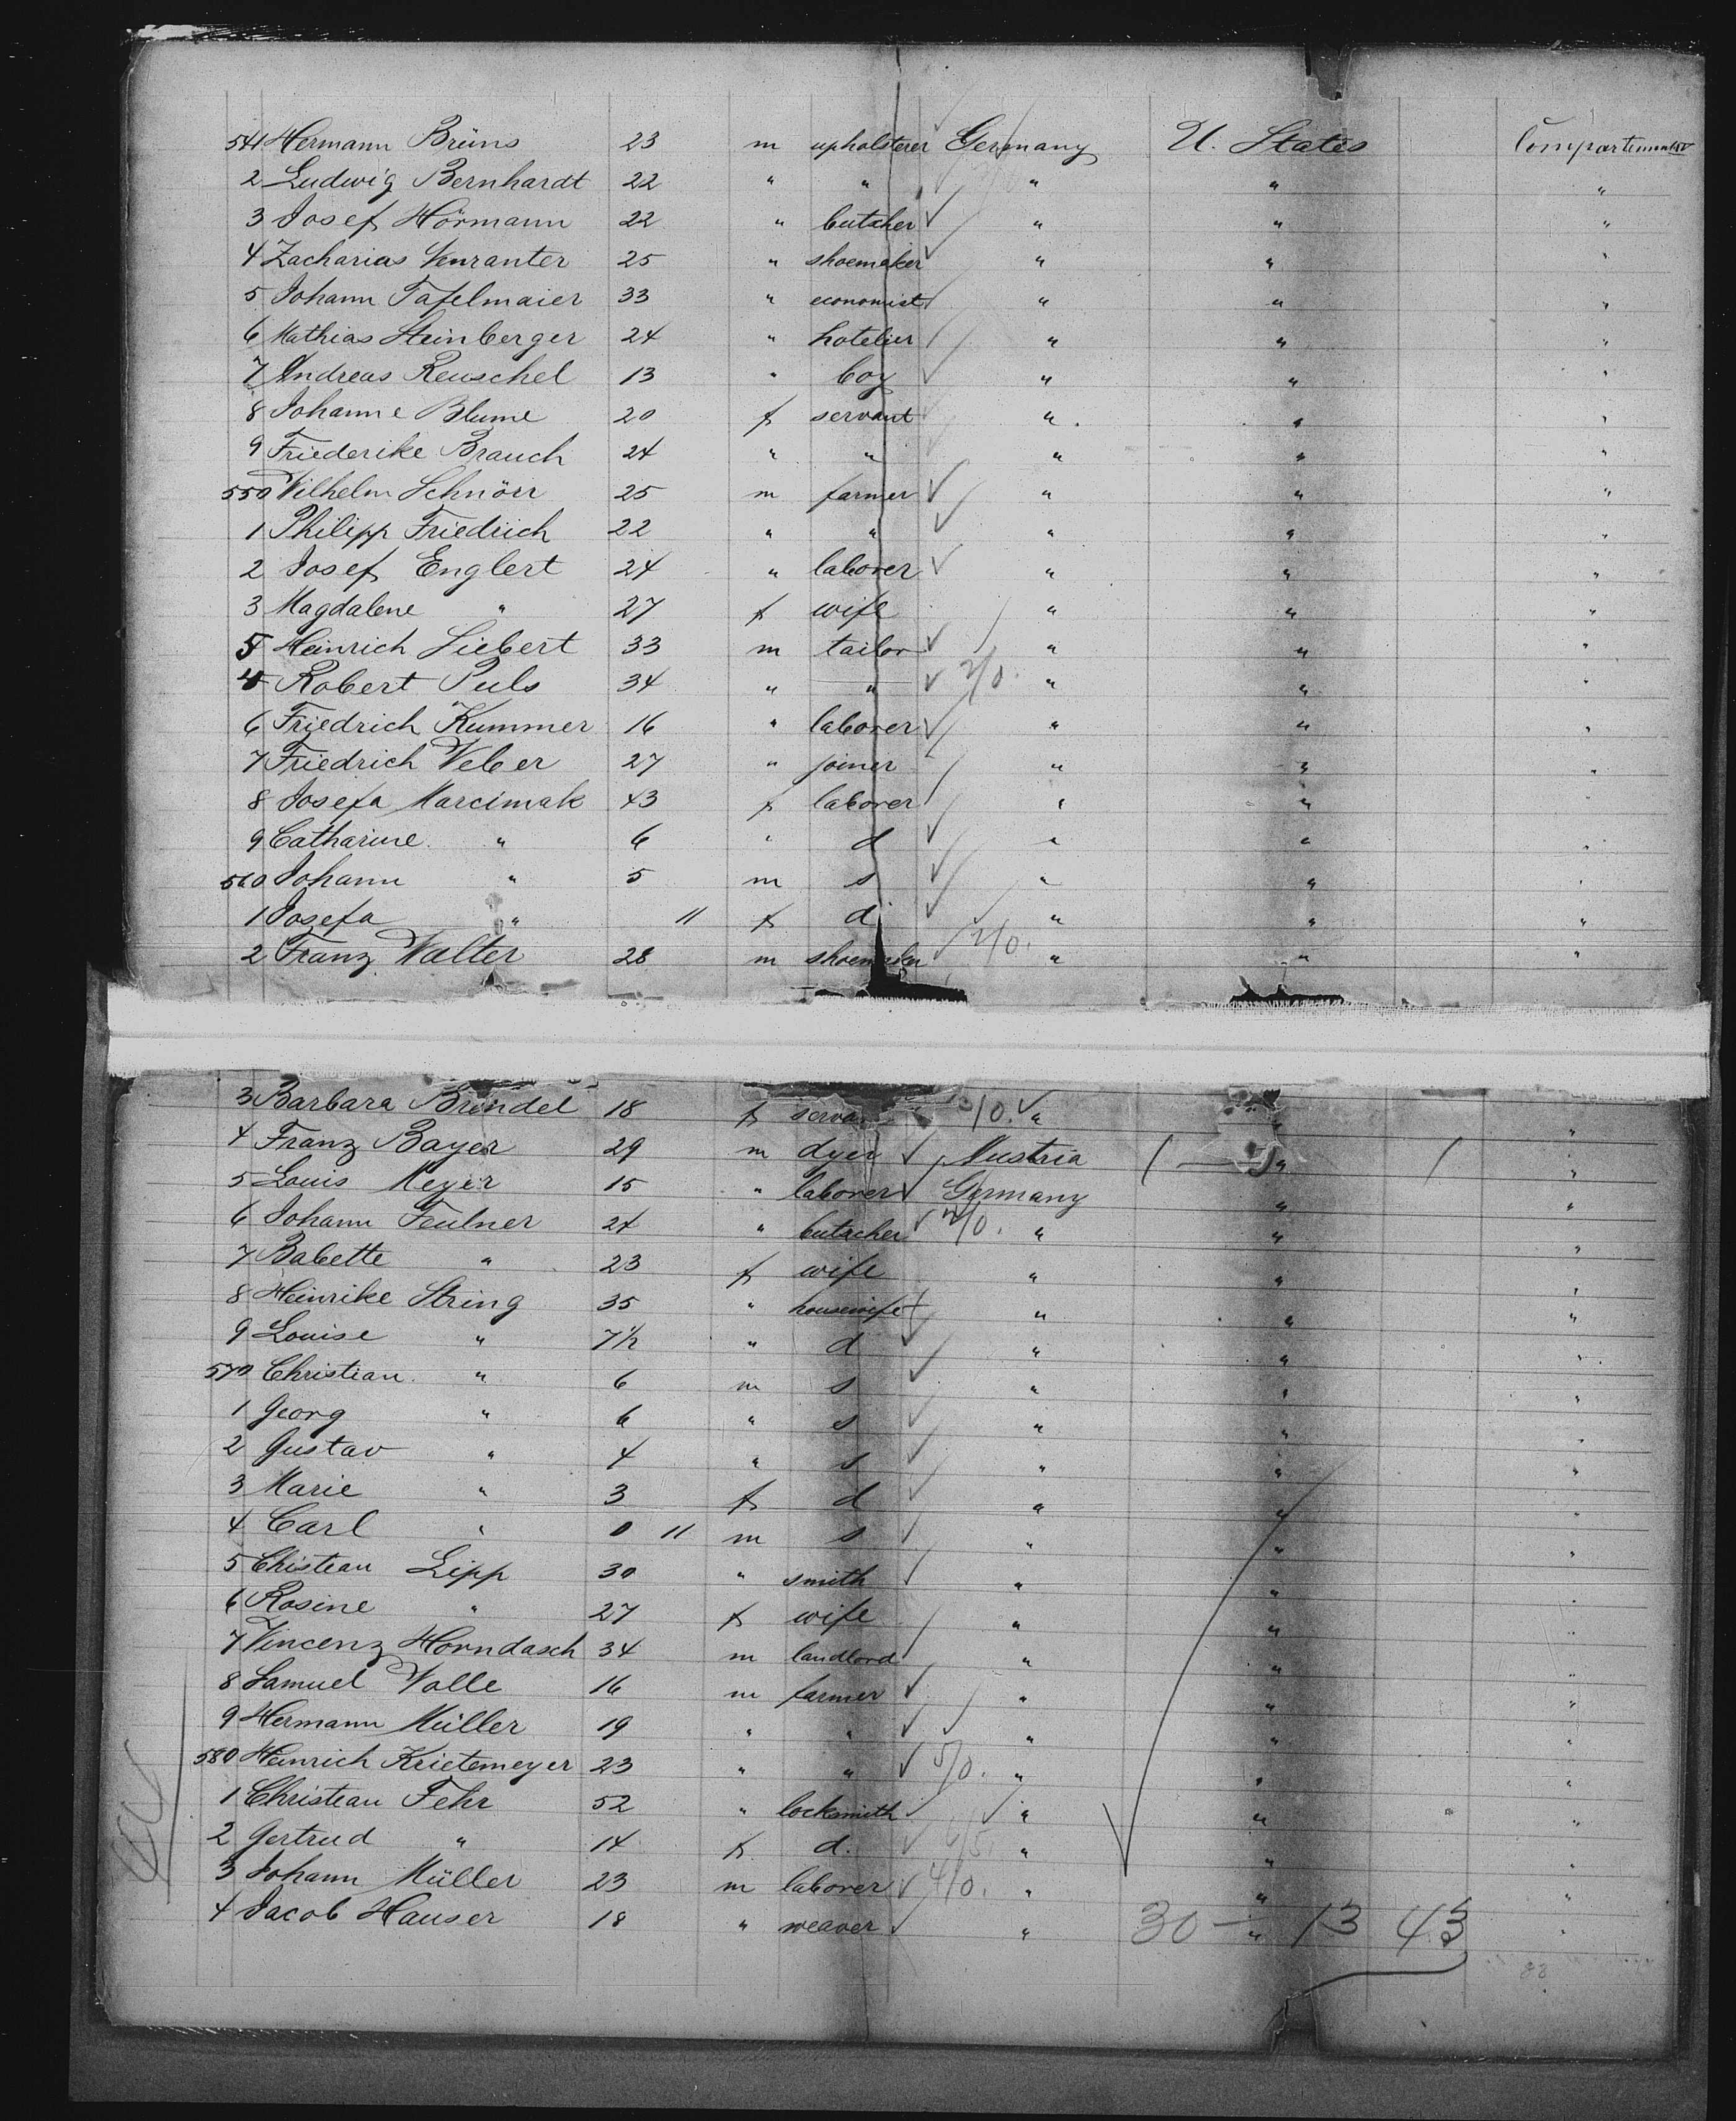 541 Hermann Brüns 23 m upholsterer Germany U. States Compartement IV
2 Ludwig Bernhardt 22 " " " " "
3 Josef Hörmann 22 " butcher " " "
4 Zacharias 25 " shoemaker " " "
5 Johann Tafelmaier 33 " economist " " "
6 Mathias Steinberger 24 " hotelier " " "
7 Andreas Reuschel 13 " boy " " "
8 Johanne Blume 20 f servant " " "
9 Friederike Brauch 24 " " " " "
550 Wilhelm Schnörr 25 m farmer " " "
1 Philipp Friedrich 22 " " " " "
2 Josef Englert 24 " laborer " " "
3 Magdalene " 27 f wife " " "
5 Heinrich Siebert 33 m tailor " " "
4 Robert Puls 34 " " 2/0. " " "
6 Friedrich Kummer 16 " laborer " " "
7 Friedrich Weber 27 " joiner " " "
8 Josefa Marcimak 43 f laborer " " "
9 Catharine " 6 " d " " "
560 Johann " 5 m s " " "
1 Josefa " 11 f d " " "
2 Franz Walter 28 m shoemaker 2/0. " " "
3 Barbara Brindel 18 f serva /0. " " "
4 Franz Bayer 29 m dyer Austria " "
5 Louis Meyer 15 " laborer Germany " "
6 Johann Feulner 24 " butscher 2/0. " " "
7 Babette " 23 f wife " " "
8 Heinrike String 35 " housewife " " "
9 Louise " 7½ " d " " "
570 Christian " 6 m s " " "
1 Georg " 6 " s " " "
2 Gustav " 4 " s " " "
3 Marie " 3 f d " " "
4 Carl " 0 11 m s " " "
5 Christian Lipp 30 " smith " " "
6 Rosine " 27 f wife " " "
7 Vincenz Horndasch 34 m landlord " " "
8 Samuel Wolle 16 m farmer " " "
9 Hermann Müller 19 " " " " "
580 Heinrich Krietemeyer 23 " " 5/0. " " "
1 Christian Fehr 52 " locksmith " " "
2 Gertrud " 14 f d. " " "
3 Johann Müller 23 m laborer 4/0. " " "
4 Jacob Hauser 18 " weaver " " "
30 — 13 43